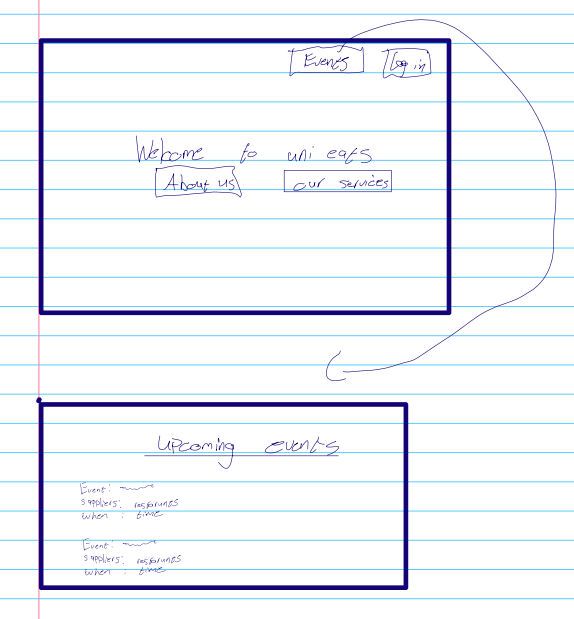 Events Log in
Welcome to uni eats
About us our services
Upcoming events
Event:
suppliers: restarunts
when : time
Event:
suppliers: restarunts
when : time